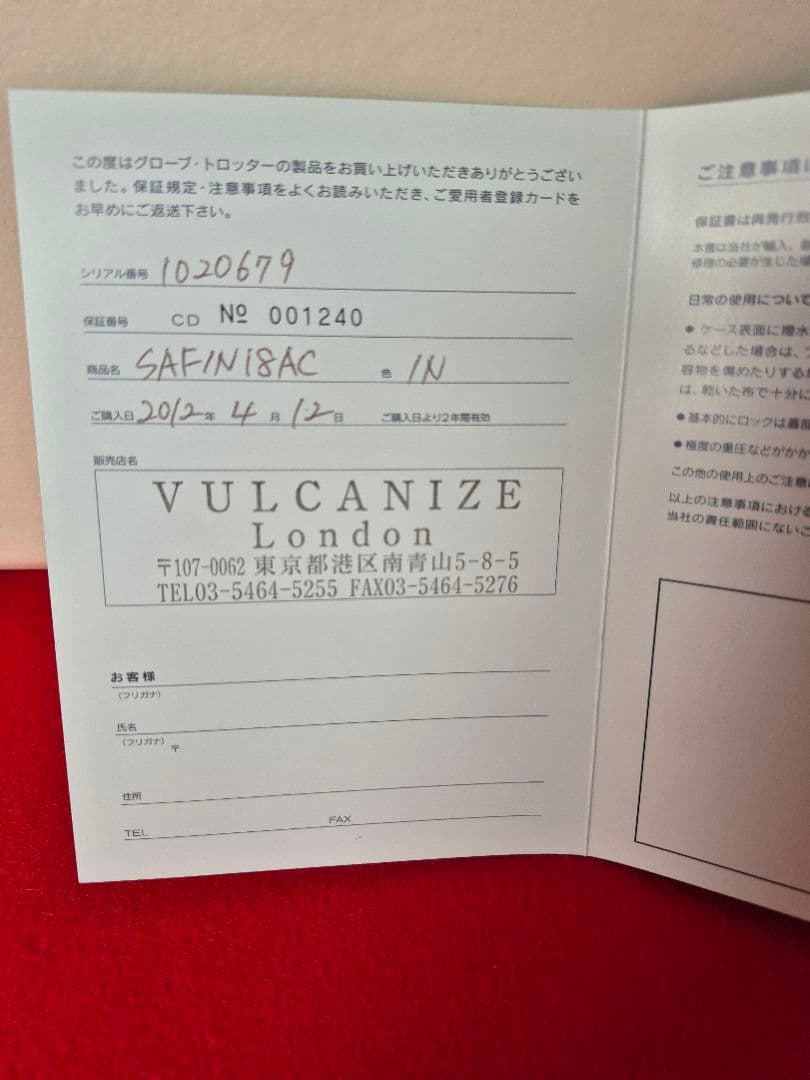 この度はグローブ・トロッターの製品をお買い上げいただきありがとうござい
ました。保証規定・注意事項をよくお読みいただき、ご愛用者登録カードを
お早めにご返送下さい。
シリアル番号 1020679
保証番号 CD Nº 001240
商品名 SAFIN18AC 色 IN
ご購入日 2012年 4月 12日 ご購入日より2年間有効
販売店名
VULCANIZE
London
〒107-0062 東京都港区南青山5-8-5
TEL03-5464-5255 FAX03-5464-5276
お客様
(フリガナ)
氏名
(フリガナ) 〒
住所
TEL FAX
ご注意事項
保証書は再発行
本書は当社が輸入、
修理の必要が生じた場
日常の使用について
● ケース表面に撥水
るなどした場合は、
容物を傷めたりする
は、乾いた布で十分に
● 基本的にロックは着脱
● 極度の重圧などがか
この他の使用上のご注意
以上の注意事項における
当社の責任範囲にないこ